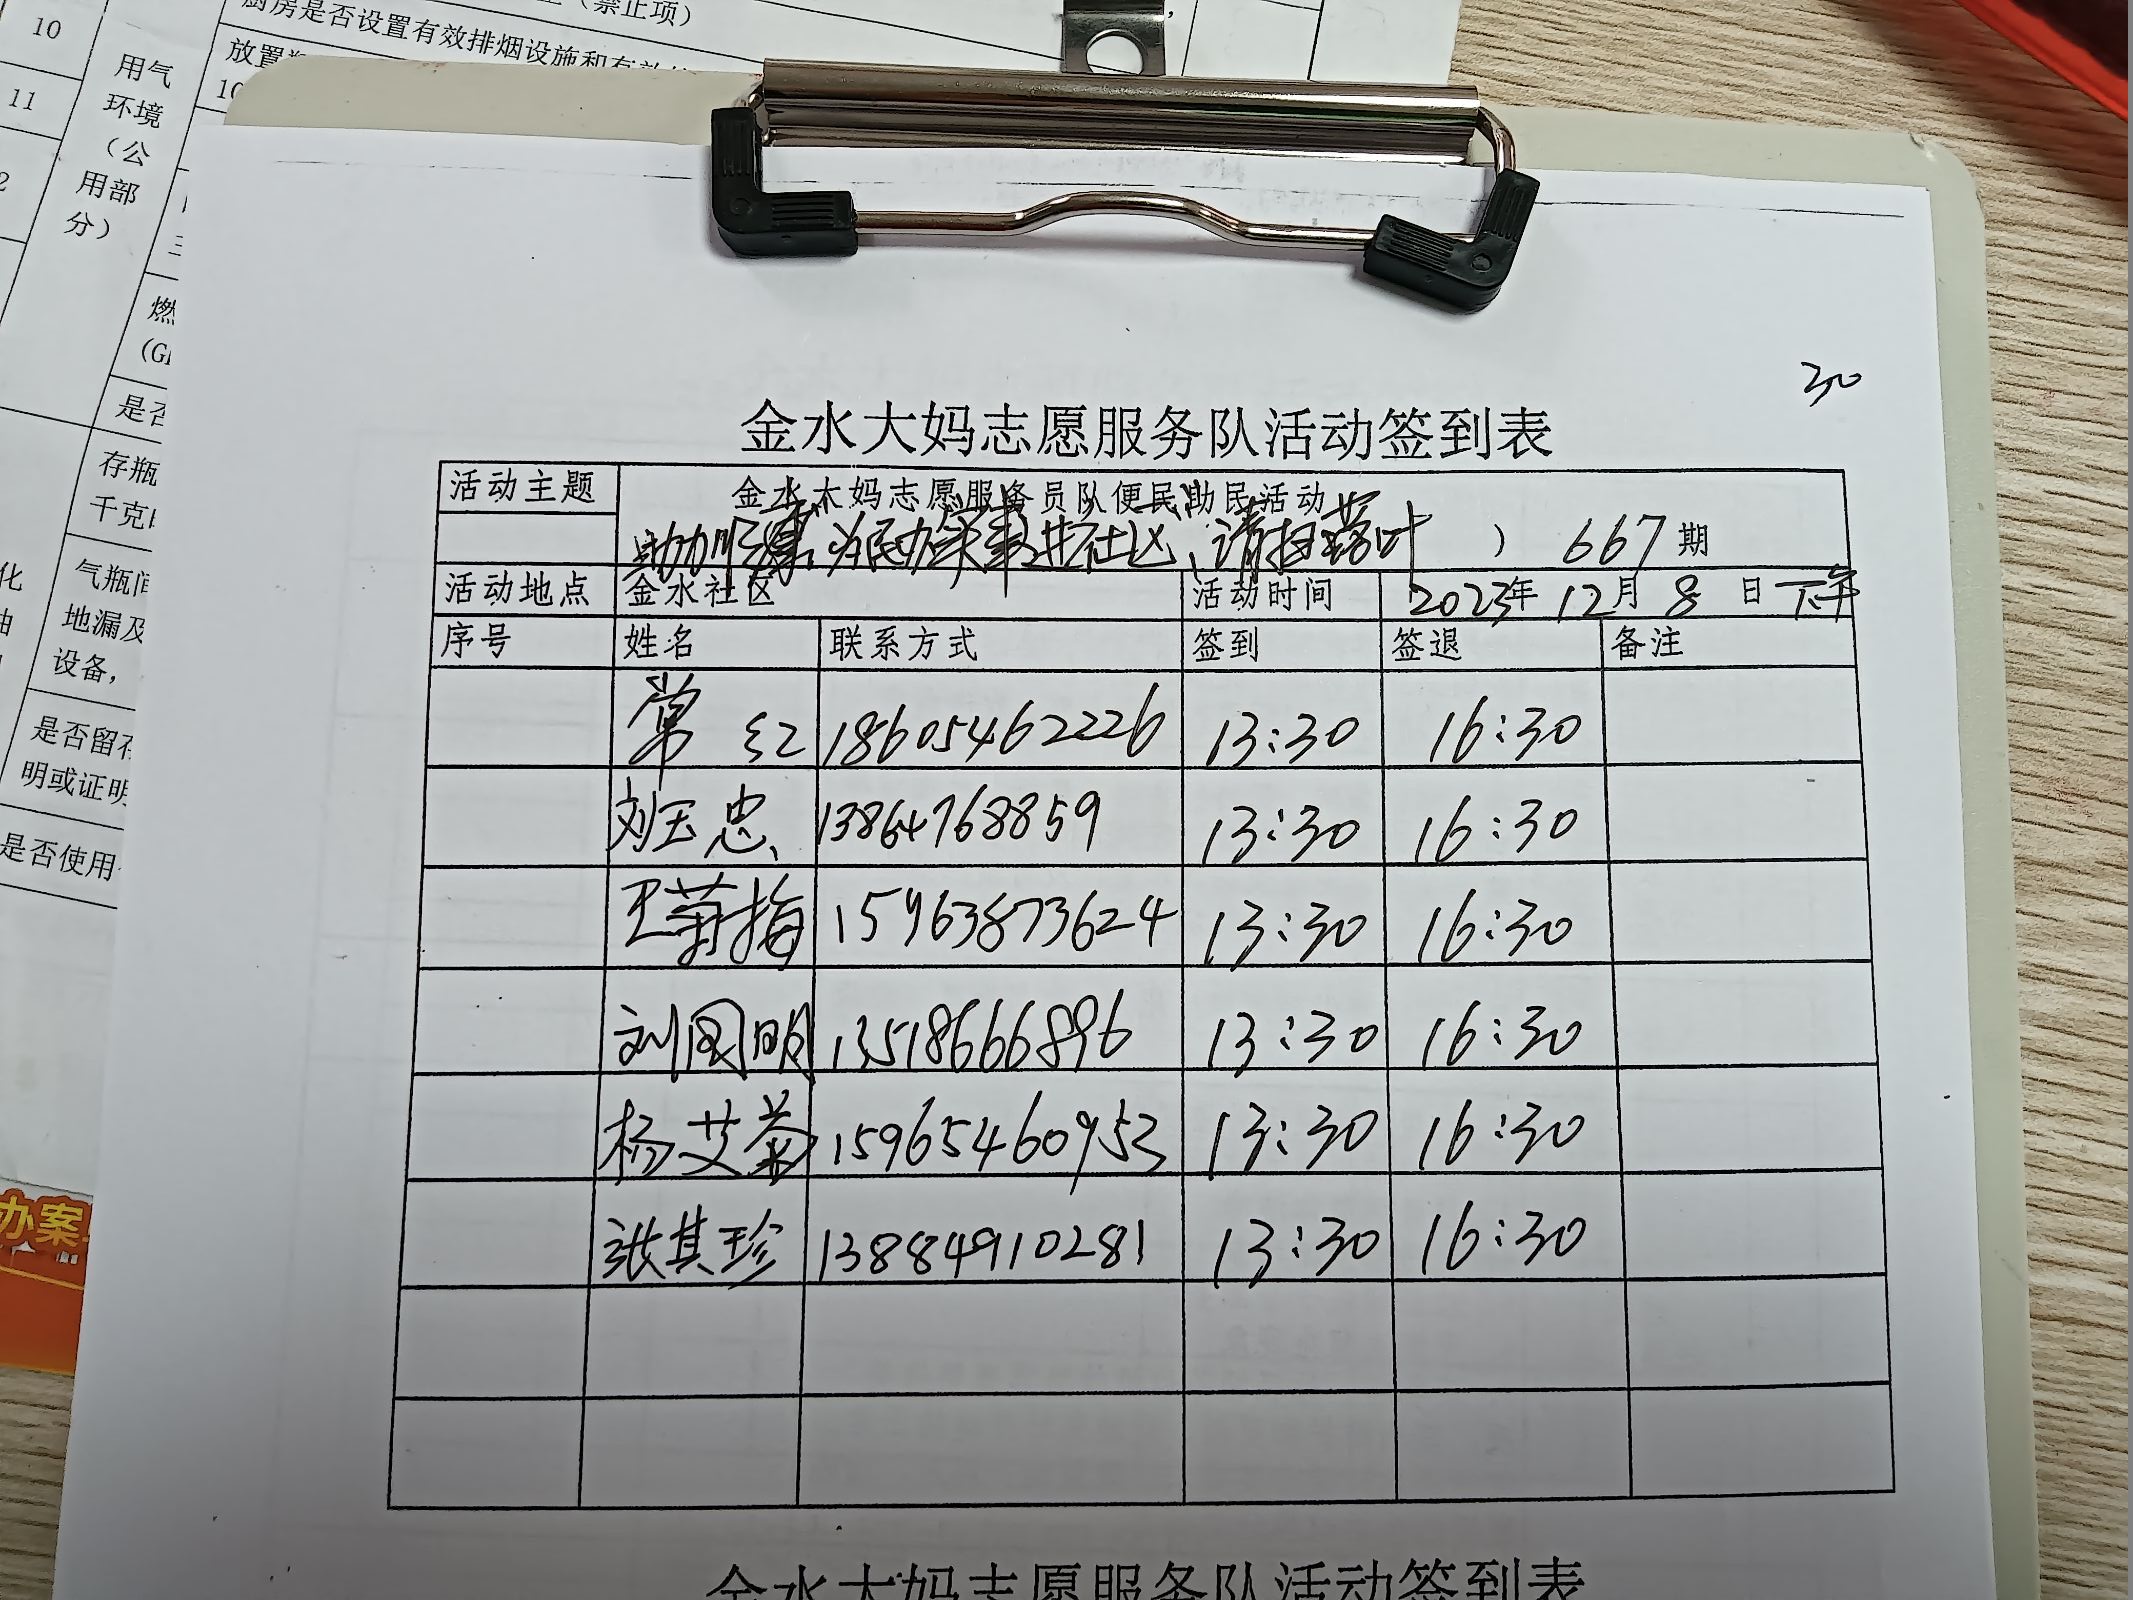 10
11
2
用气
环境
（公
用部
分）
（禁止项）
厨房是否设置有效排烟设施和有效
放置
10
燃
(G
是否
存瓶
千克
气瓶间
地漏及
设备，
是否留存
明或证明
是否使用
化
办案
30
金水大妈志愿服务队活动签到表
活动主题 金水大妈志愿服务员队便民助民活动
为民办实事进社区、清扫落叶 ） 667 期
活动地点 金水社区 活动时间 2023年 12月 8 日 下午
序号 姓名 联系方式 签到 签退 备注
常 红 18605462226 13:30 16:30
刘玉忠 13864768859 13:30 16:30
王菊梅 15963873624 13:30 16:30
刘国明 13518666896 13:30 16:30
杨艾菊 15965460953 13:30 16:30
张其珍 13884910281 13:30 16:30
金水大妈志愿服务队活动签到表